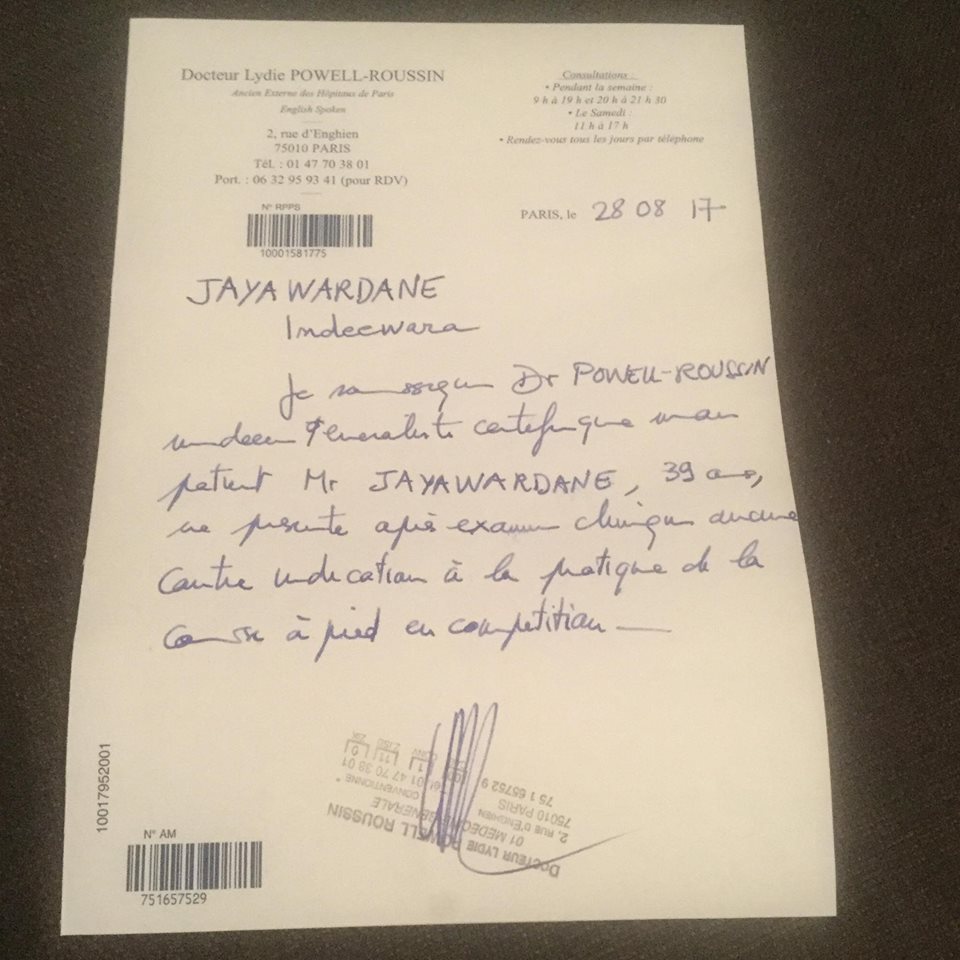 Docteur Lydie POWELL-ROUSSIN
Ancien Externe des Hôpitaux de Paris
English Spoken
2, rue d'Enghien
75010 PARIS
Tél. : 01 47 70 38 01
Port. : 06 32 95 93 41 (pour RDV)
Consultations :
• Pendant la semaine :
9 h à 19 h et 20 h à 21 h 30
• Le Samedi :
11 h à 17 h
• Rendez-vous tous les jours par téléphone
N° RPPS
10001581775
PARIS, le 28 08 17
JAYAWARDANE
Indeewara
Je soussigné Dr POWELL-ROUSSIN
médecin généraliste certifie que mon
patient Mr JAYAWARDANE, 39 ans,
ne présente après examen clinique aucune
contre indication à la pratique de la
course à pied en compétition
DOCTEUR LYDIE POWELL ROUSSIN
01 MEDECINE GENERALE
2, RUE D'ENGHIEN CONVENTIONNE
75010 PARIS Tél 01 47 70 38 01
75 1 65752 9
10017952001
N° AM
751657529